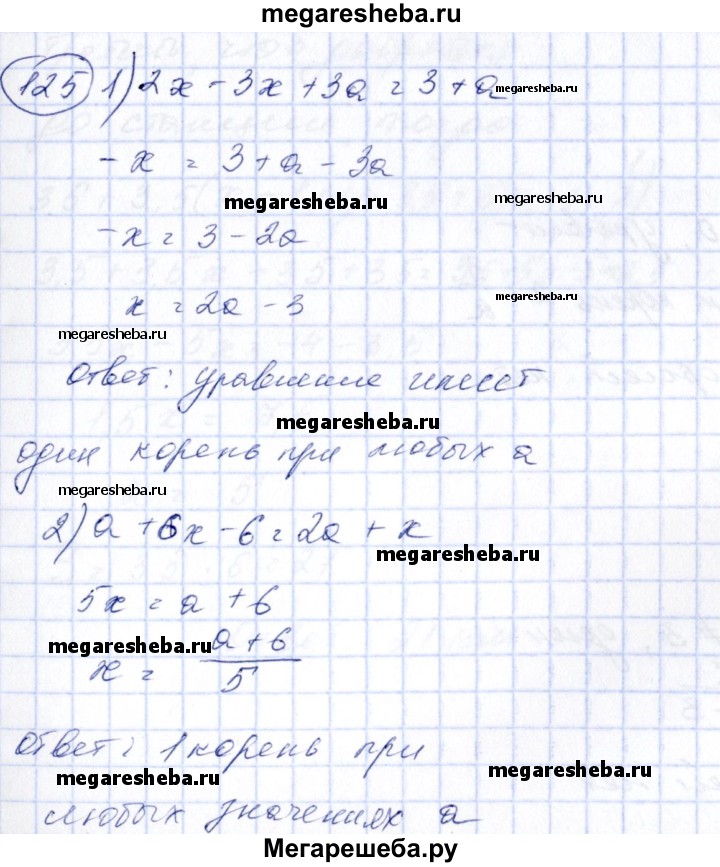 megaresheba.ru
125 1) 2x - 3x + 3a = 3 + a megaresheba.ru
-x = 3 + a - 3a
megaresheba.ru megaresheba.ru
-x = 3 - 2a
x = 2a - 3
megaresheba.ru megaresheba.ru
Ответ: уравнение имеет
megaresheba.ru
один корень при любых a
megaresheba.ru
2) a + 6x - 6 = 2a + x
megaresheba.ru
5x = a + 6
megaresheba.ru
x = \frac{a + 6}{5}
Ответ: 1 корень при
megaresheba.ru megaresheba.ru
любых значениях a
Мегарешеба.ру